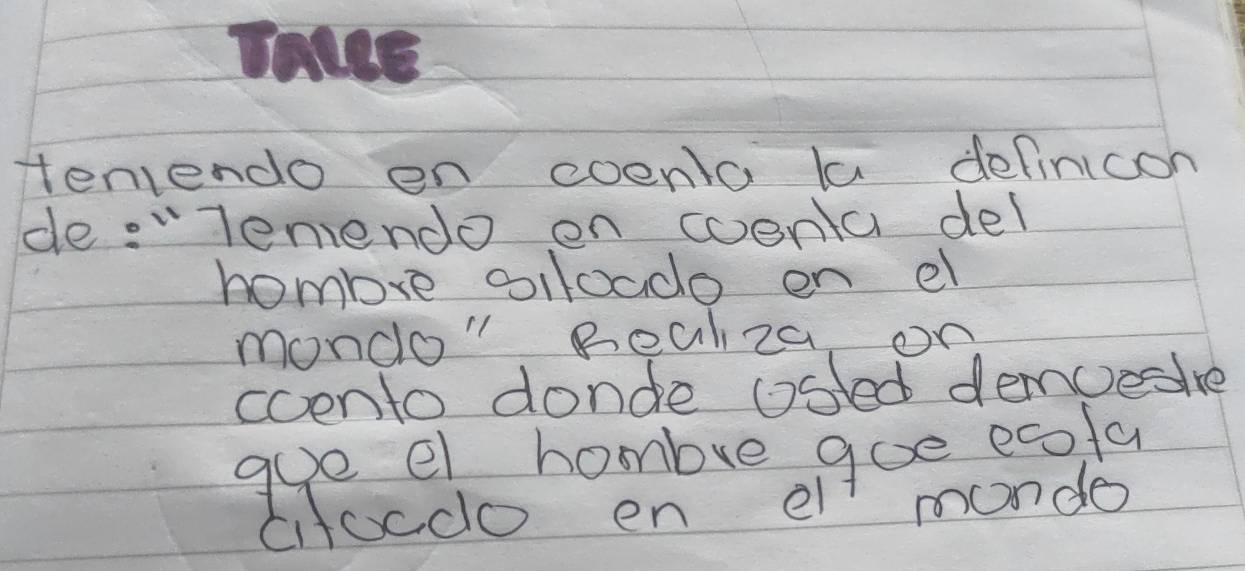 TALLE
teniendo en coenta la definicon
de : "Teniendo en cuenta del
hombre situado en el
mundo" Realiza un
cuento donde usted demuestre
que el hombre que esta
citucado en el mundo